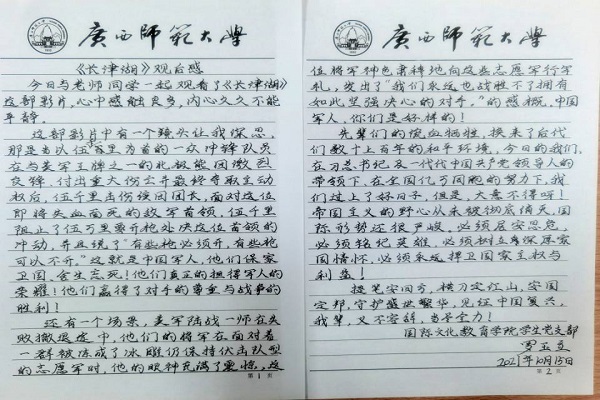 廣西師範大學
《长津湖》观后感
今日与老师同学一起观看了《长津湖》
这部影片,心中感触良多,内心久久不能
平静。
这部影片中有一个镜头让我深思,
那是当以伍百里为首的一众冲锋队员
在与美军王牌之一的北极熊团激烈
交锋,付出重大伤亡并最终夺取主动
权后,伍千里击伤候团团长,面对这位
即将失血而死的敌军首领,伍千里
阻止了伍万里要开枪处决这位首领的
冲动,并且说了“有些枪必须开,有些枪
可以不开。”这就是中国军人,他们保家
卫国,舍生忘死!他们真正的担得军人的
荣耀!他们赢得了对手的尊重与战争的
胜利!
还有一个场景,美军陆战一师在失
败撤退途中,他们的将军在面对着
一群被冻成了冰雕仍保持伏击队型
的志愿军时,他的眼神充满了震惊,这
第 1 页
廣西師範大學
位将军神色肃穆地向这些志愿军行军
礼,发出了“我们永远也战胜不了拥有
如此坚强决心的对手。”的感慨,中国
军人,你们是好样的!
先辈们的流血牺牲,换来了后代
们数十上百年的和平环境,今日的我们,
在习总书记及一代代中国共产党领导人的
带领下,在全国亿万同胞的努力下,我
们过上了好日子,但是,大意不得呀!
帝国主义的野心从未被彻底消灭,国
际形势还很严峻,必须居安思危,
必须铭记英雄,必须树立身深厚家
国情怀,必须永远捍卫国家主权与
利益!
提笔安同方,横刀定红山,安国
定邦,守护盛世繁华,见证中国复兴,
我辈,义不容辞,当尽全力!
国际文化教育学院学生党支部
罗玉立
2021年10月15日
第 2 页